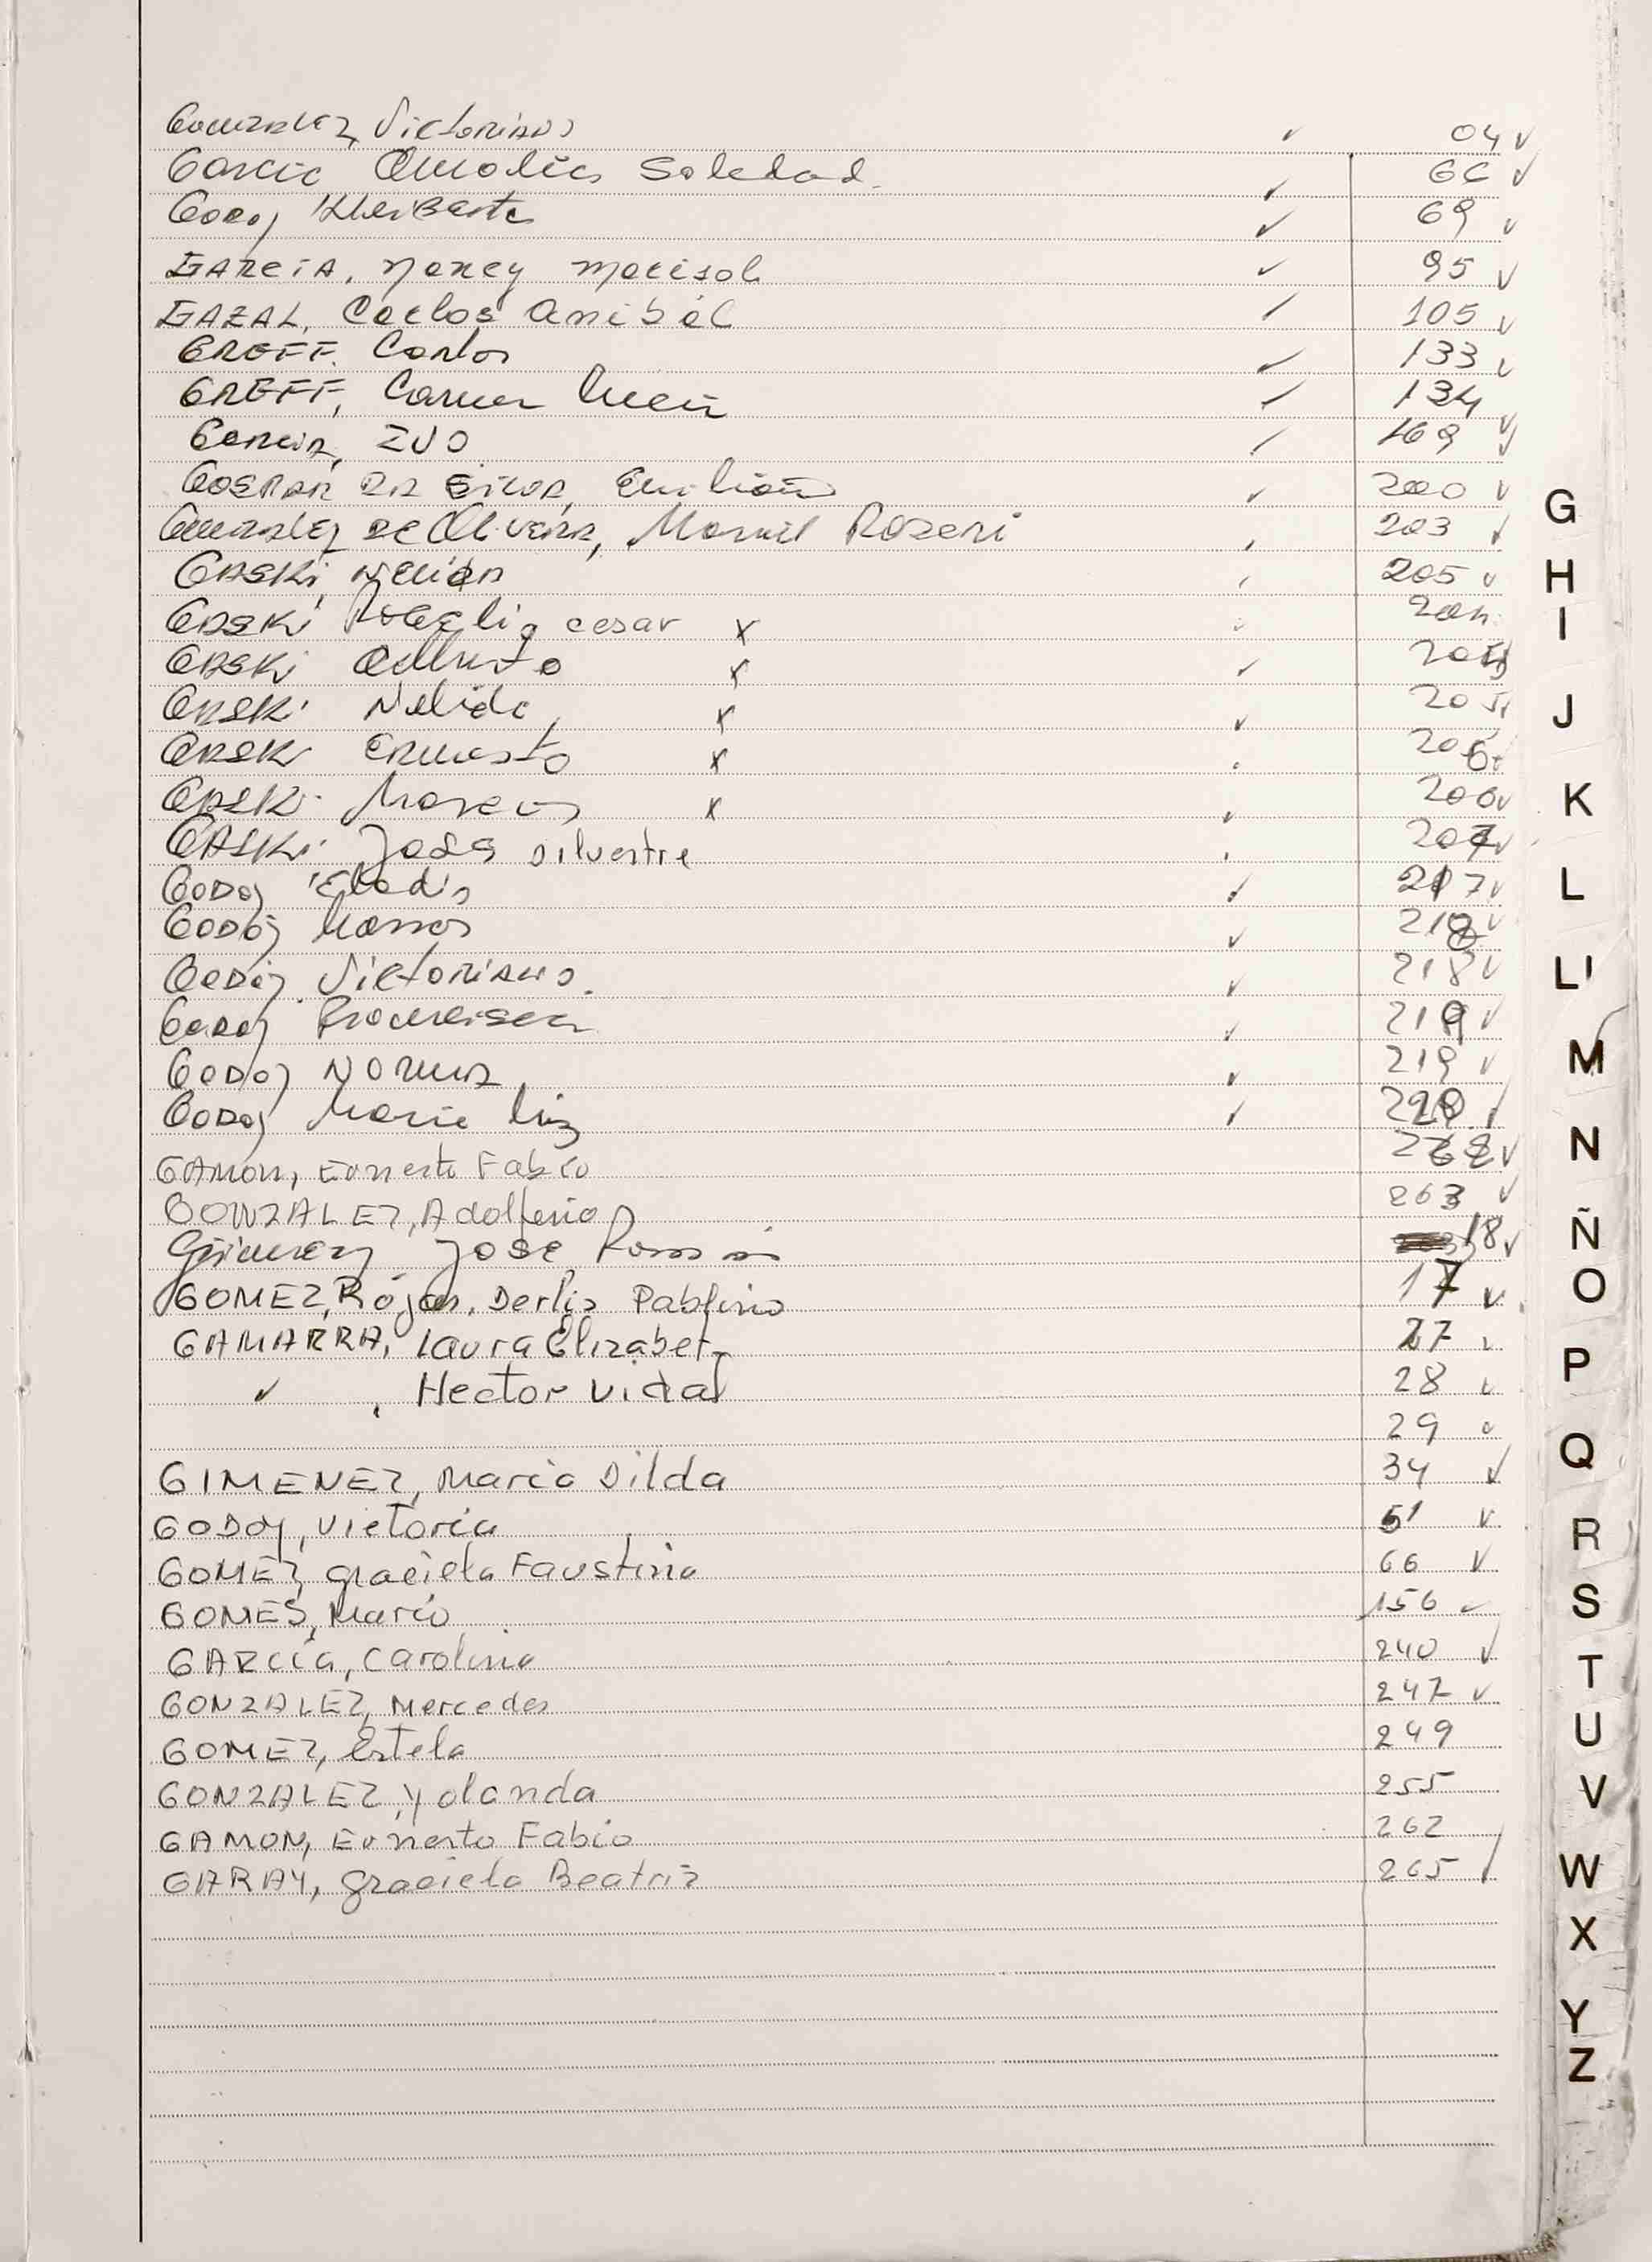 Gonzalez, Victoriano ✓ 04 ✓
Garcia Amalia Soledad. ✓ 66 ✓
Godoy ✓ 69 ✓
GARCIA, Nancy Marisol ✓ 95 ✓
GAZAL, Carlos Anibal ✓ 105 ✓
GREFF. Carlos ✓ 133 ✓
GREFF, Carmen ✓ 134 ✓
Garcia, IVO ✓ 169 ✓
DA SILVA, 200 ✓
Gonzalez DE OLIVEIRA, Roseni 203 ✓
GASKI, 205 ✓
GASKI Rogelio cesar x
GASKI x ✓
GASKI Nelida x ✓ 205
GASKI Ernesto x 206
GASKI Marcos x ✓ 206 ✓
GASKI Jose silvestre 207 ✓
GODOY Eladio ✓ 217 ✓
GODOY Marcos ✓ 218 ✓
GODOY Victoriano. ✓ 218 ✓
GODOY Francisca ✓ 219 ✓
GODOY NORMA ✓ 219 ✓
GODOY Maria Luz ✓
GAMON, Ernesto Fabio 262 ✓
GONZALEZ, Adolfina 263 ✓
Gimenez JOSE Ramon 18 ✓
GOMEZ, Rojas, Derlis Pablino 17 ✓
GAMARRA, Laura Elizabet 27 ✓
✓ , Hector Vidal 28 ✓
29 ✓
GIMENEZ, Maria Dilda 34 ✓
GODOY, Victoria 51 ✓
GOMEZ, Graciela Faustina 66 ✓
GOMES, Mario 156 ✓
GARCIA, Carolina 240 ✓
GONZALEZ, Mercedes 247 ✓
GOMEZ, Estela 249
GONZALEZ, Yolanda 255
GAMON, Ernesto Fabio 262
GARAY, Graciela Beatriz 265 ✓
G
H
I
J
K
L
LL
M
N
Ñ
O
P
Q
R
S
T
U
V
W
X
Y
Z